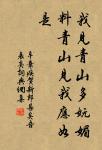 我見青山多嫵媚
料青山見我應如
是
辛棄疾賀新郎甚矣吾
衰矣詞典網集